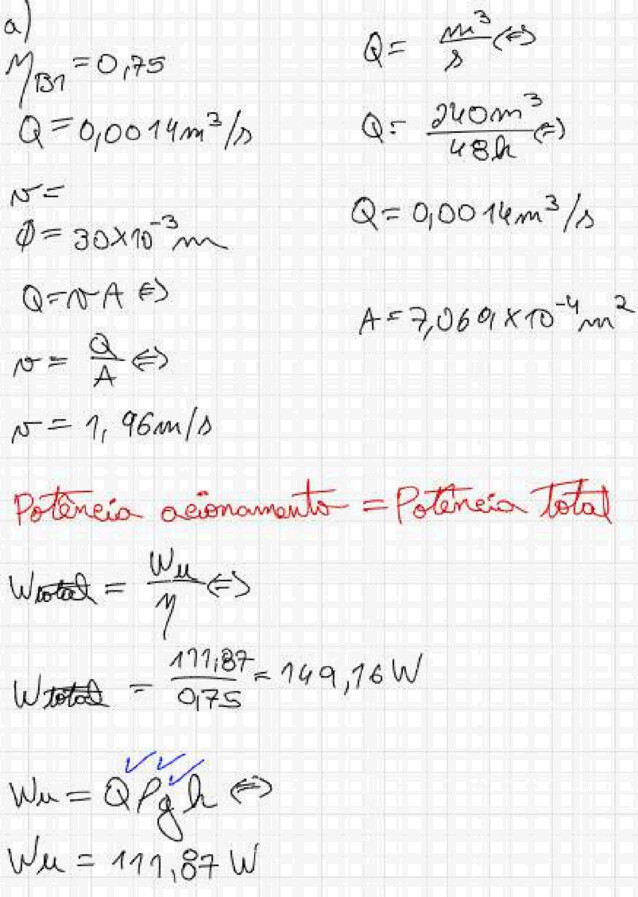 a)
η_B1 = 0,75
Q = 0,0014 m³/s
v =
Ø = 30×10⁻³ m
Q = v A ⇔
v = Q/A ⇔
v = 1,96 m/s
Q = m³/s ⇔
Q = 240 m³/48h ⇔
Q = 0,0014 m³/s
A = 7,069 × 10⁻⁴ m²
Potência acionamento = Potência Total
W total = Wu/η ⇔
W total = 111,87/0,75 = 149,16 W
Wu = Q ρ g h ⇔
Wu = 111,87 W